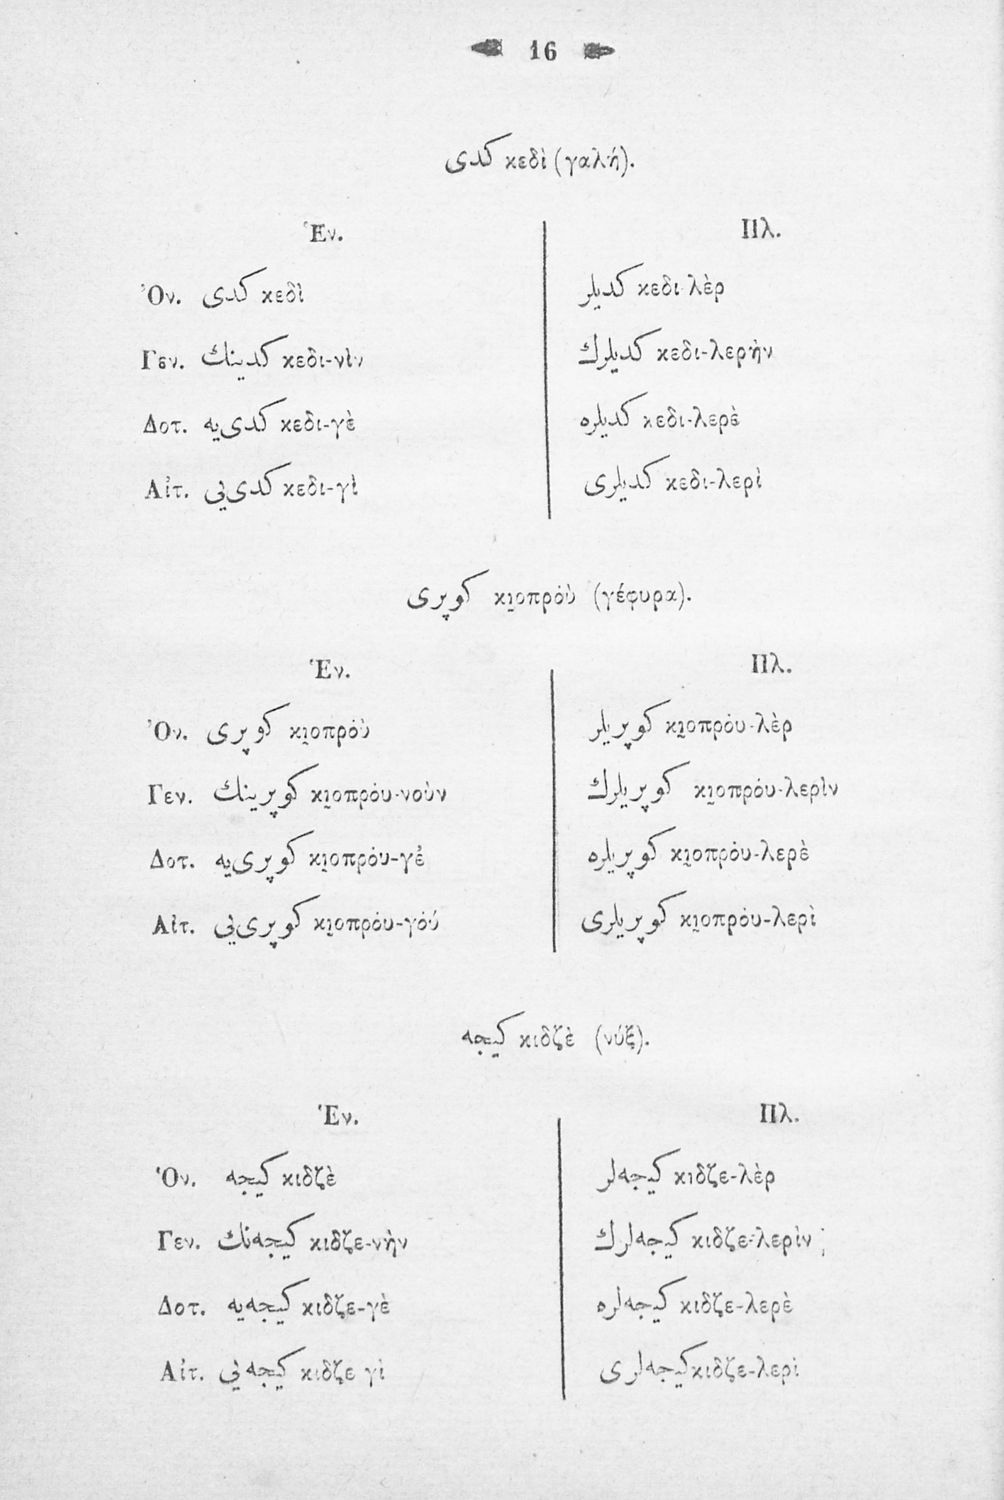 16
كدی κεδὶ (γαλή).
Ἑν. Πλ.
Ὀν. كدی κεδὶ كديلر κεδι-λὲρ
Γεν. كدينك κεδι-νὶν كديلرك κεδι-λερὴν
Δοτ. كدی‌يه κεδι-γὲ كديلره κεδι-λερὲ
Αἰτ. كدی‌يی κεδι-γὶ كديلری κεδι-λερὶ
كوپری κι̮οπρὀὺ (γέφυρα).
Ἑν. Πλ.
Ὀν. كوپری κι̮οπρὀὺ كوپريلر κι̮οπρὀυ-λὲρ
Γεν. كوپرينك κι̮οπρὀυ-νοὺν كوپريلرك κι̮οπρὀυ-λερὶν
Δοτ. كوپری‌يه κι̮οπρὀυ-γὲ كوپريلره κι̮οπρὀυ-λερὲ
Αἰτ. كوپری‌يی κι̮οπρὀυ-γὀύ كوپريلری κι̮οπρὀυ-λερὶ
كيجه κιδζὲ (νύξ).
Ἑν. Πλ.
Ὀν. كيجه κιδζὲ كيجه‌لر κιδζε-λὲρ
Γεν. كيجه‌نك κιδζε-νὴν كيجه‌لرك κιδζε-λερὶν
Δοτ. كيجه‌يه κιδζε-γὲ كيجه‌لره κιδζε-λερὲ
Αἰτ. كيجه‌يی κιδζε γὶ كيجه‌لری κιδζε-λερὶ